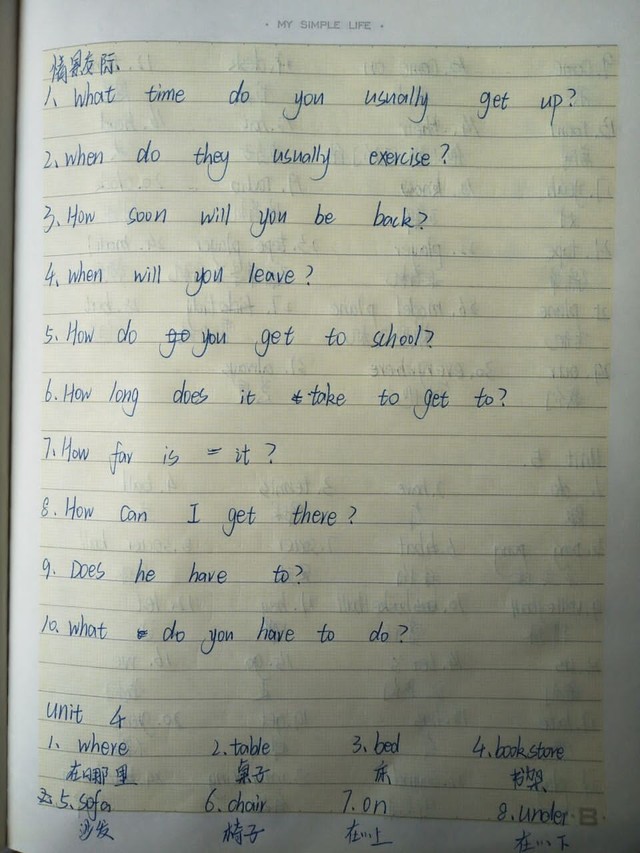 · MY SIMPLE LIFE ·
情景交际
1. What time do you usually get up?
2. when do they usually exercise?
3. How soon will you be back?
4. when will you leave?
5. How do you get to school?
6. How long does it take to get to?
7. How far is it?
8. How can I get there?
9. Does he have to?
10. what do you have to do?
unit 4
1. where 2. table 3. bed 4. bookstore
在哪里 桌子 床 书架
5. sofa 6. chair 7. on 8. under
沙发 椅子 在…上 在…下